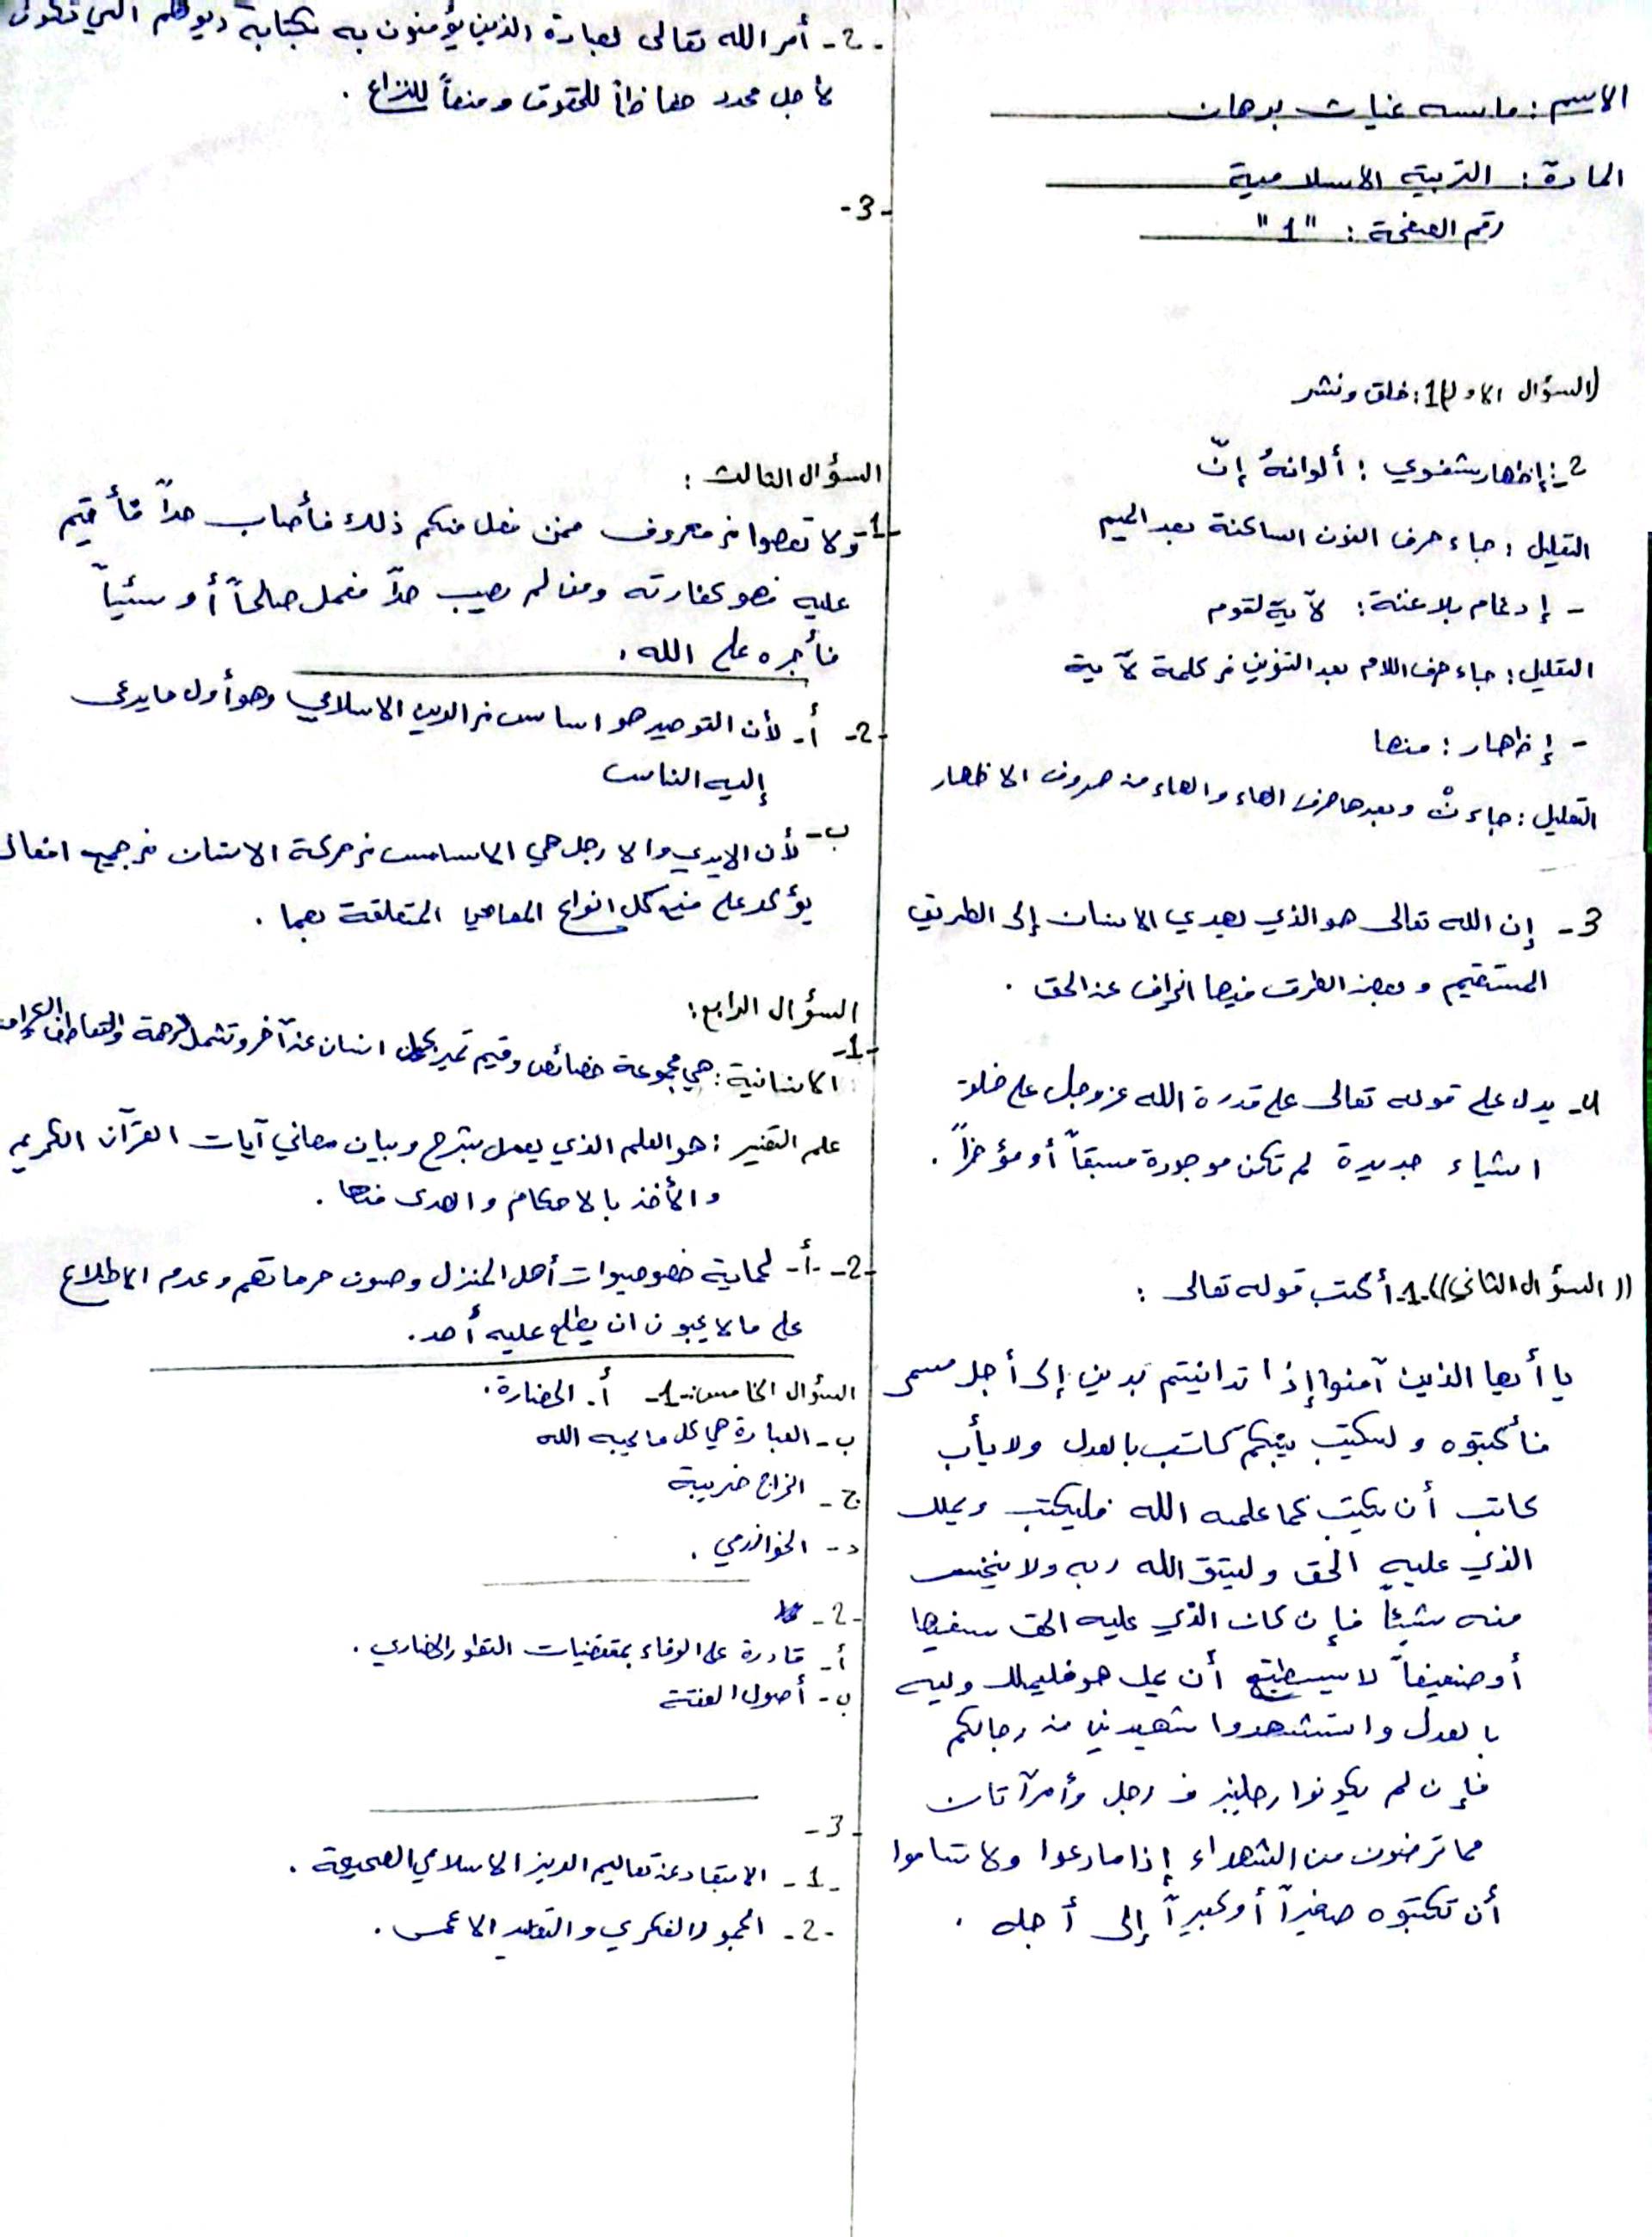 الاسم : ماسه غياث برهان
المادة : التربية الاسلامية
رقم الصفحة : "1"
(السؤال الاول) 1: خلق ونشر
2-: إظهار شفوي : ألوانهُ إنّ
التعليل : جاء حرف النون الساكنة بعد الميم
- إدغام بلا غنة : لآية لقوم
التعليل : جاء حرف اللام بعد التنوين في كلمة لآية
- إظهار : منها
التعليل : جاء نْ وبعدها حرف الهاء والهاء من حروف الاظهار
3- إن الله تعالى هو الذي يهدي الانسان إلى الطريق
المستقيم وبعض الطرق فيها انحراف عن الحق .
4- يدل على قوله تعالى على قدرة الله عز وجل على خلق
اشياء جديدة لم تكن موجودة مسبقاً أو مؤخراً .
((السؤال الثاني)) -1- أكتب قوله تعالى :
يا أيها الذين آمنوا إذا تداينتم بدين إلى أجل مسمى
فأكتبوه وليكتب بينكم كاتب بالعدل ولا يأب
كاتب أن يكتب كما علمه الله فليكتب ويملل
الذي عليه الحق وليتق الله ربه ولا يبخس
منه شيئاً فإن كان الذي عليه الحق سفيها
أو ضعيفاً لا يسطتيع أن يمل هو فليملل وليه
بالعدل واستشهدوا شهيدين من رجالكم
فإن لم يكونوا رجلين فرجل وأمرآتان
مما ترضون من الشهداء إذا ما دعوا ولا تساموا
أن تكتبوه صغيراً أو كبيراً إلى أجله .
-2- أمر الله تعالى لعبادة الذين يؤمنون به بكتابة ديونهم التي تكون
لأجل محدد حفاظاً للحقوق ومنعاً للنزاع .
-3-
السؤال الثالث :
-1- ولا تعصوا في معروف فمن فعل منكم ذلك فأصاب حداً فأقيم
عليه فهو كفارته ومن لم يصيب حداً فعمل صالحاً أو سئياً
فأجره على الله .
-2- أ- لأن التوحيد هو اساس في الدين الاسلامي وهو أول ما يدعى
إليه الناس
ب- لأن الايدي والارجل هي الاساس في حركة الانسان في جميع افعال
يؤكد على منع كل انواع المعاصي المتعلقة بهما .
السؤال الرابع :
-1-
الانسانية : هي مجموعة خصائص وقيم تميز كل انسان عن آخر وتشمل الرحمة والتعاطف
علم التفسير : هو العلم الذي يعمل بشرح وبيان معاني آيات القرآن الكريم
والأخذ بالاحكام والهدى منها .
-2- أ- لحماية خصوصيات أهل المنزل وصون حرماتهم وعدم الاطلاع
على ما لا يحبون ان يطلع عليه أحد .
السؤال الخامس : -1- أ. الحضارة .
ب- العبادة هي كل ما يحبه الله
ج- الخراج ضريبة
د- الخوارزمي .
-2-
أ- قادرة على الوفاء بمقتضيات التطور الحضاري .
ب- أصول الفقه
-3-
-1- الابتعاد عن تعاليم الدين الاسلامي الصحيحة .
-2- الجمود الفكري والتقليد الاعمى .